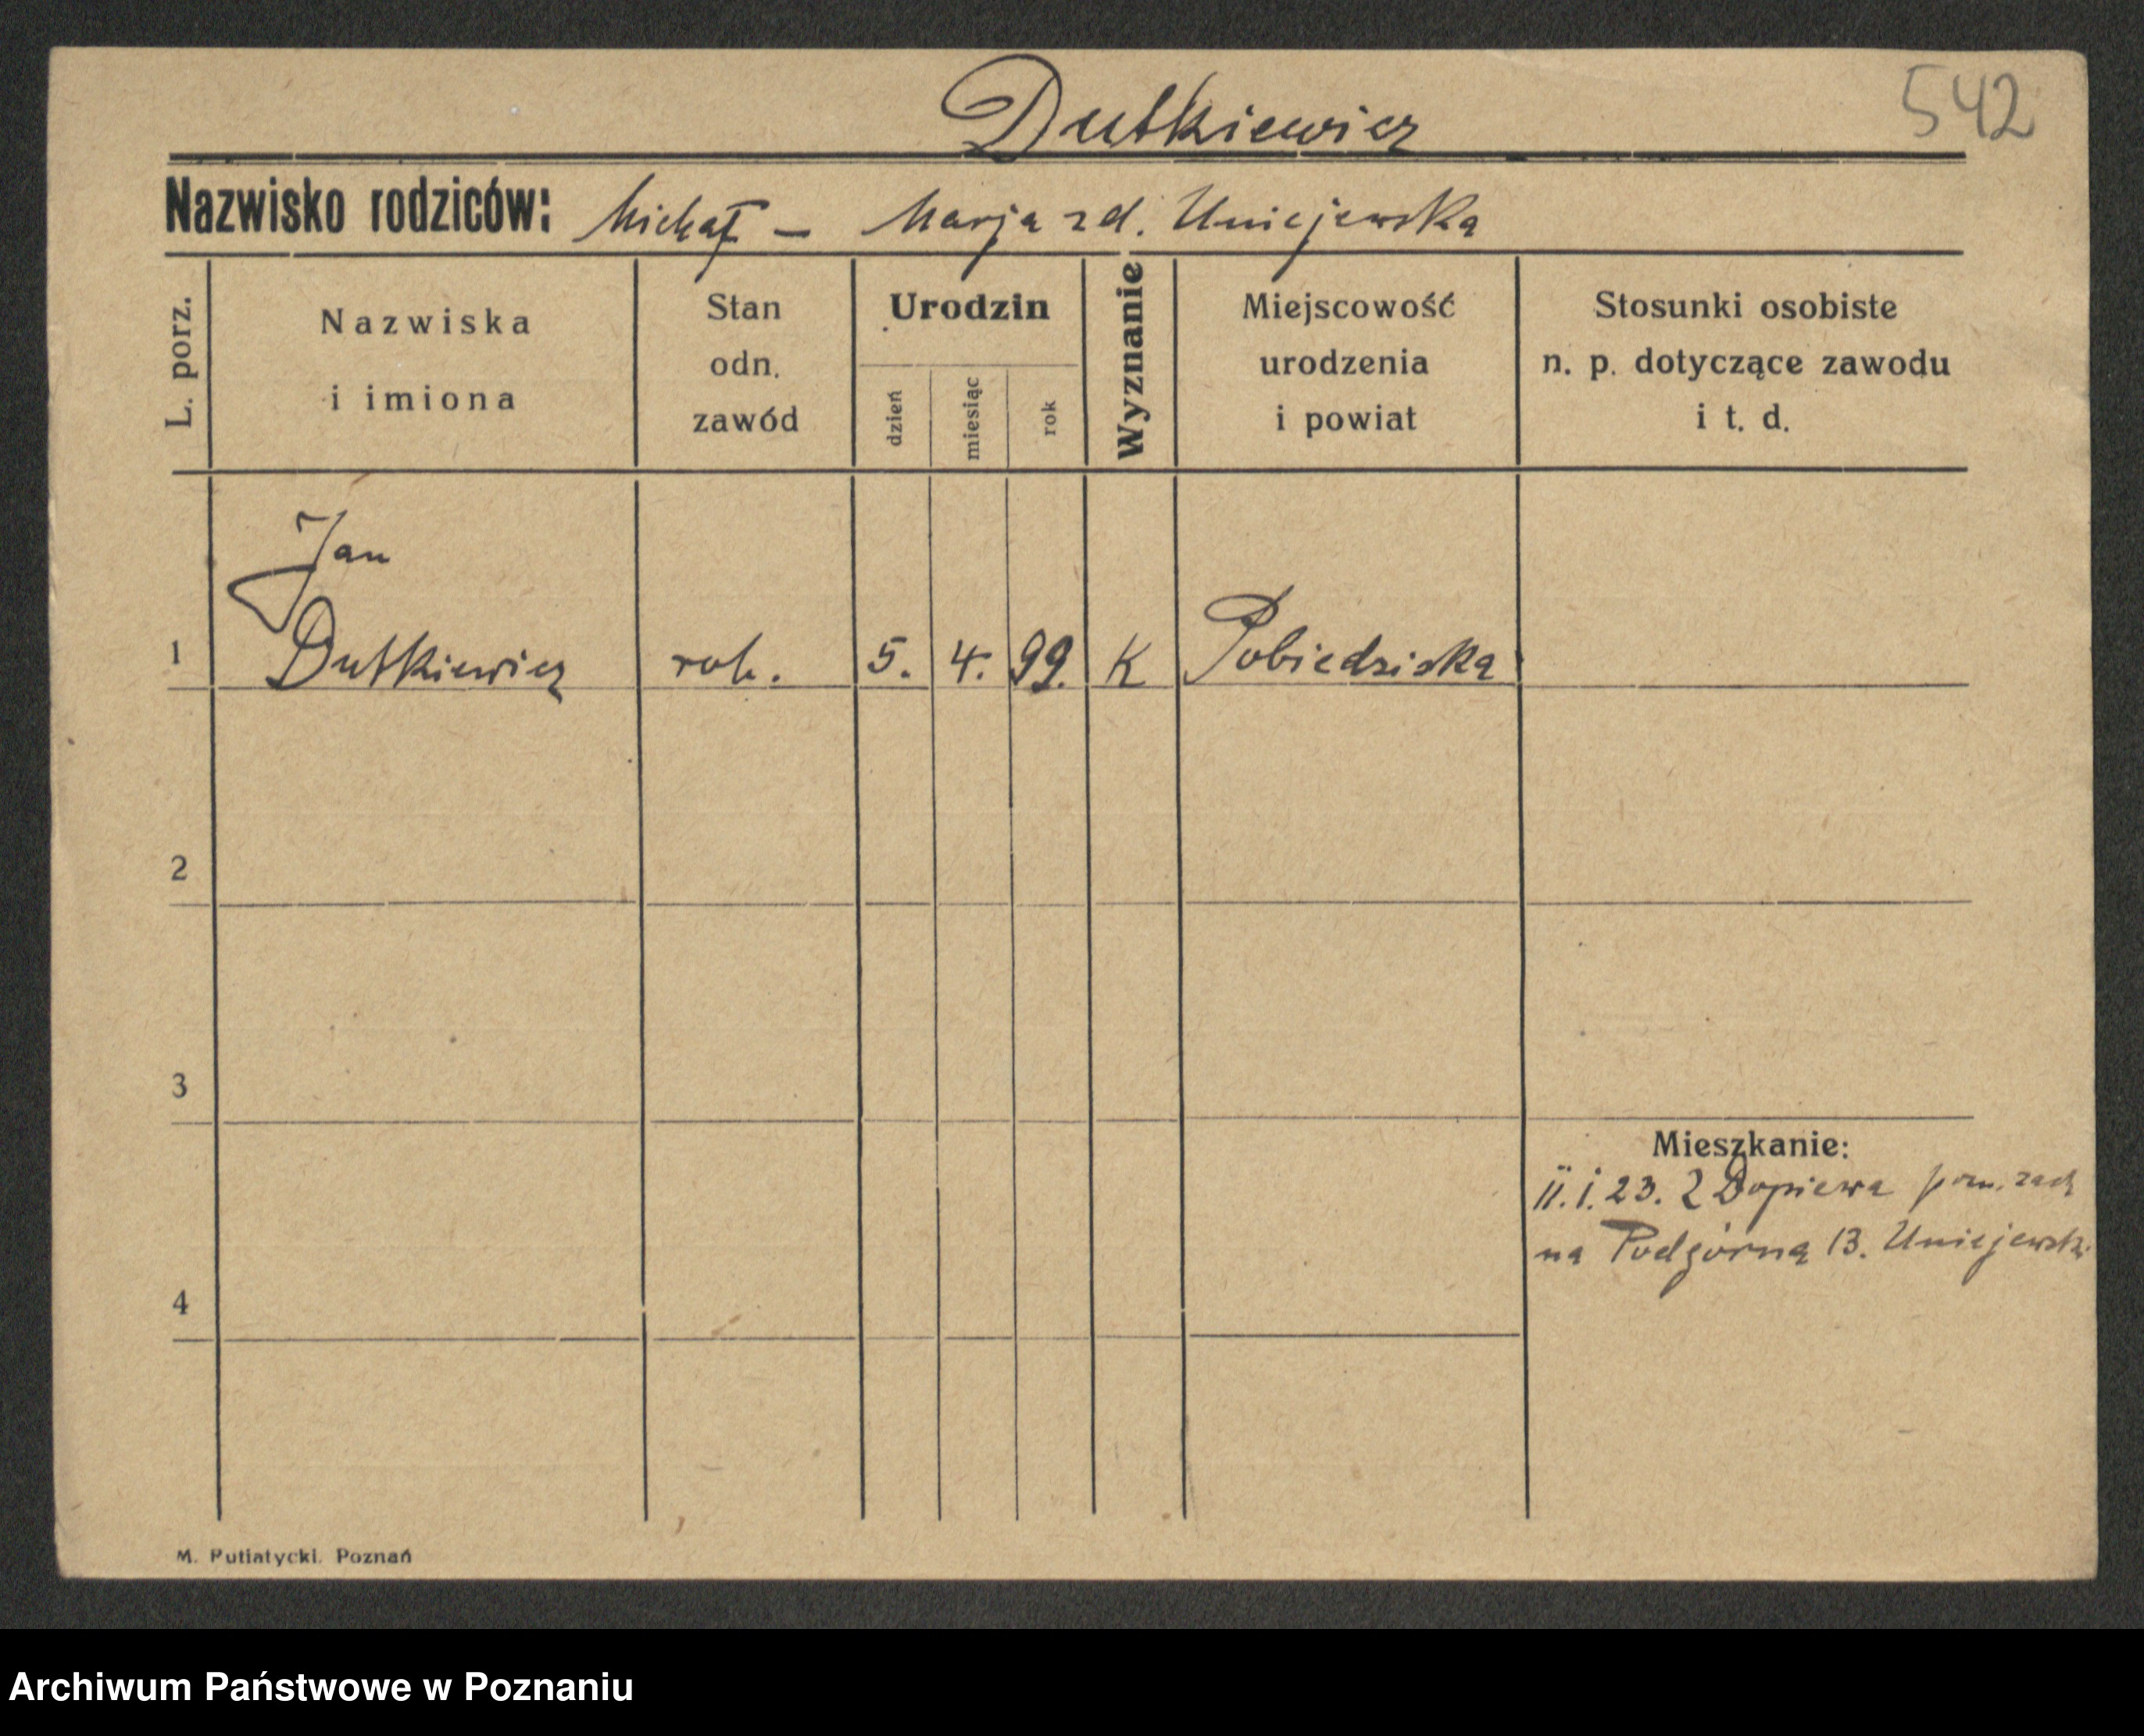 Dutkiewicz
542
Nazwisko rodziców: Michał – Marja zd. Uniejewska
L. porz.
Nazwiska
i imiona
Stan
odn.
zawód
Urodzin
dzień
miesiąc
rok
Wyznanie
Miejscowość
urodzenia
i powiat
Stosunki osobiste
n. p. dotyczące zawodu
i t. d.
Jan
1 Dutkiewicz rob. 5. 4. 99. K Pobiedziska
2
3
Mieszkanie:
11. 1. 23. z Dopiewa pozn. zach
na Podgórną 13. Uniejewski
4
M. Putiatycki. Poznań
Archiwum Państwowe w Poznaniu